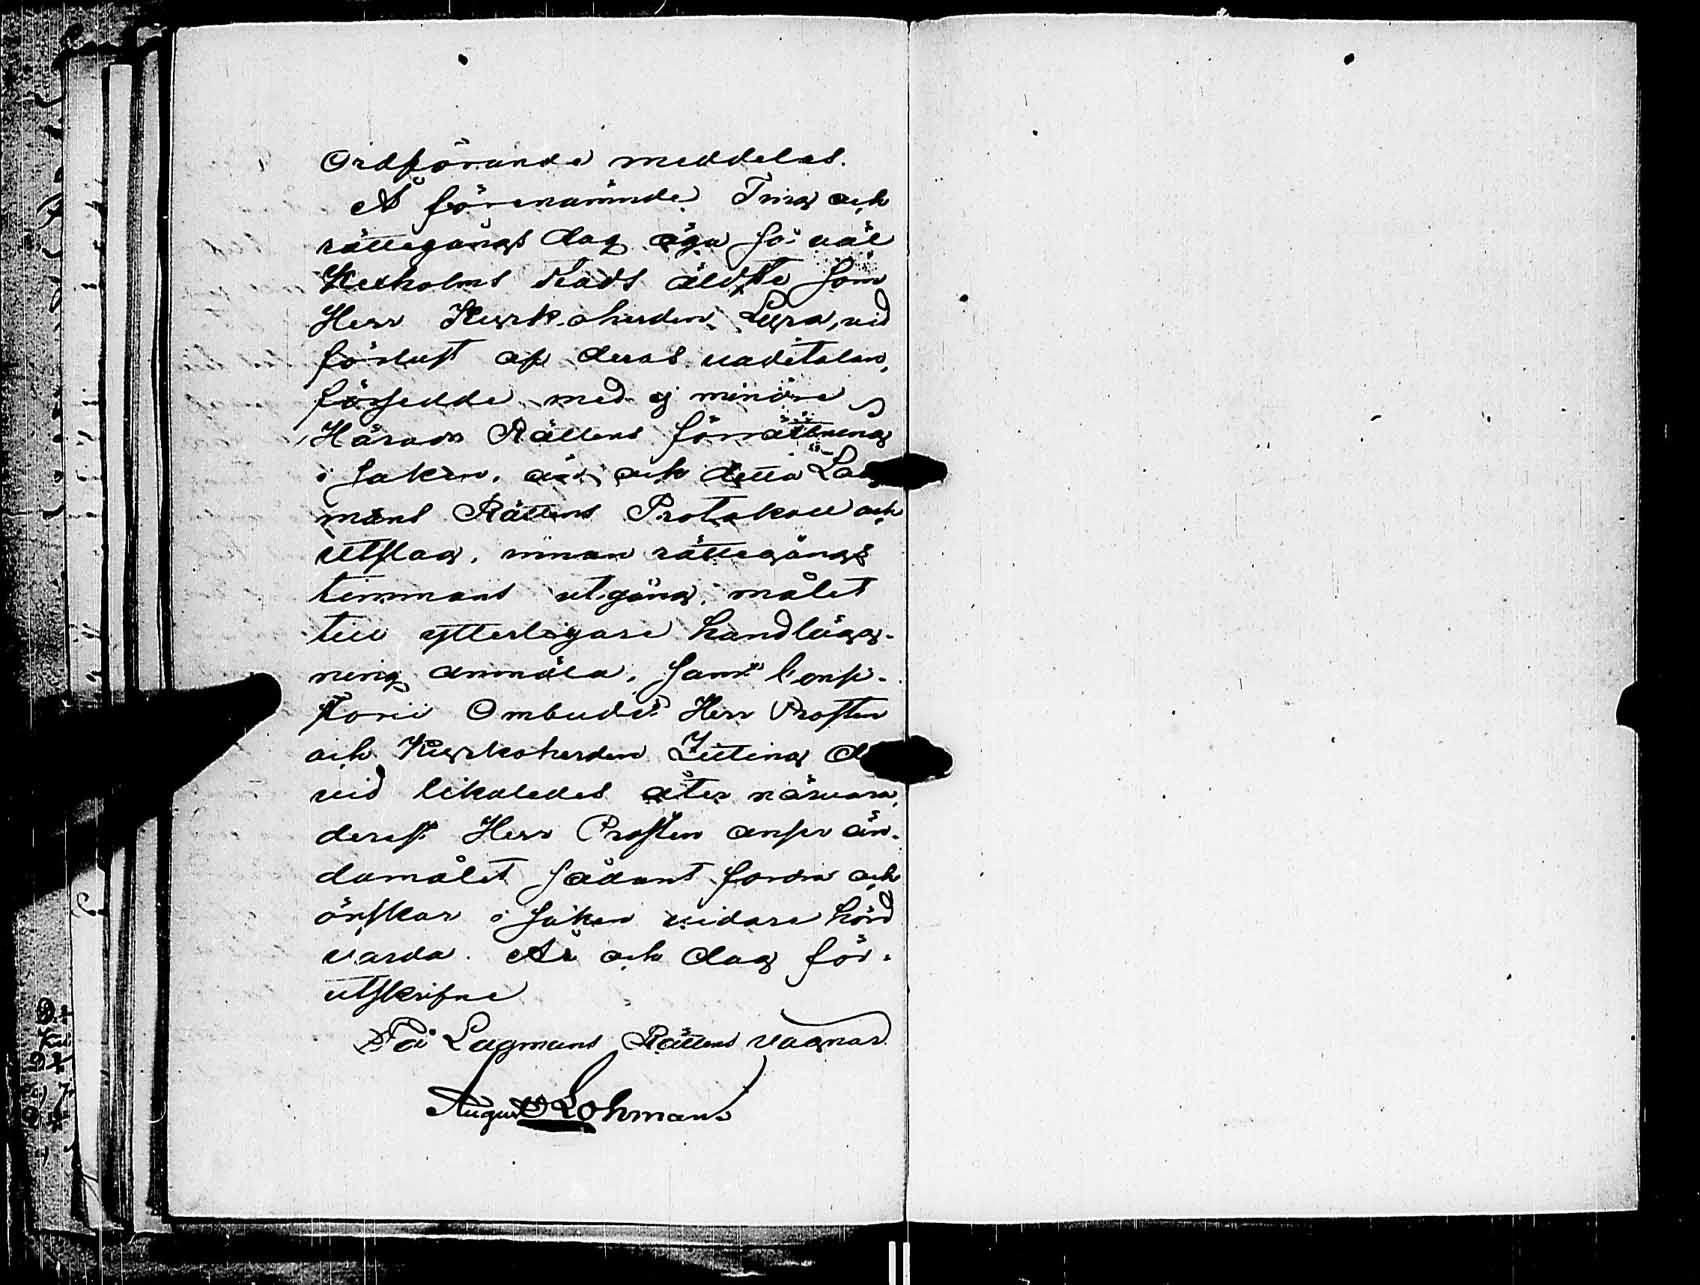 Ordförande meddelas.
Å förenämnde Ting och
rättegångs dag äga så väl
Kexholms Stads äldste som
Herr Kyrkoherden Lyra, vid
förlust af deras vadetalan,
försedde med ej mindre
Härads Rättens förrättning
i saken, än ock detta Lag
mans Rättens Protokoll och
utslag, innan rättegångs
timmans utgång, målet
till ytterligare handlägg-
ning anmäla, samt Consi-
storii Ombud Herr Prosten
och Kyrkoherden
vid likaledes åter närvara,
derest Herr Prosten anser än-
damålet sådant fordra och
önskar i saken vidare hörd
varda. År och dag för-
utskrifne
På Lagmans Rättens vägnar
August Lohmans